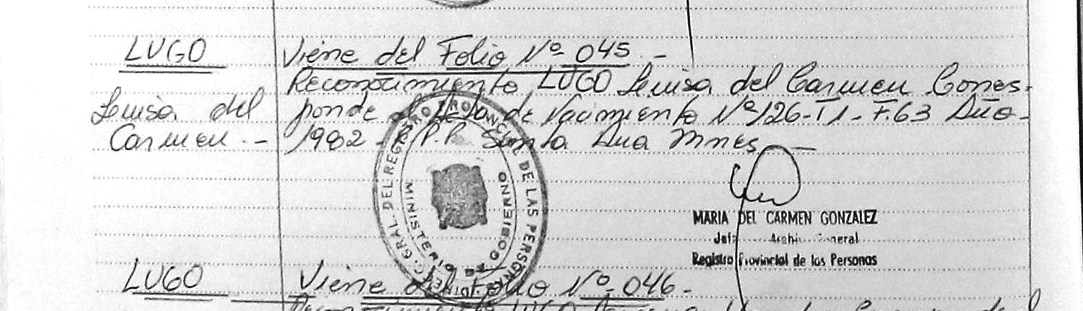 LUGO Viene del Folio Nº 045 -
Reconocimiento LUGO Luisa del Carmen Corres-
Luisa del ponde al Acta de Nacimiento Nº 126-T1-F.63 Año
Carmen.- 1982 - P.P. Santa Ana Mnes
MARIA DEL CARMEN GONZALEZ
Jefa Archivo General
Registro Provincial de las Personas
GRAL. DEL REGISTRO PROVINCIAL DE LAS PERSONAS
MINISTERIO DE GOBIERNO
LUGO Viene del Folio Nº 046.-